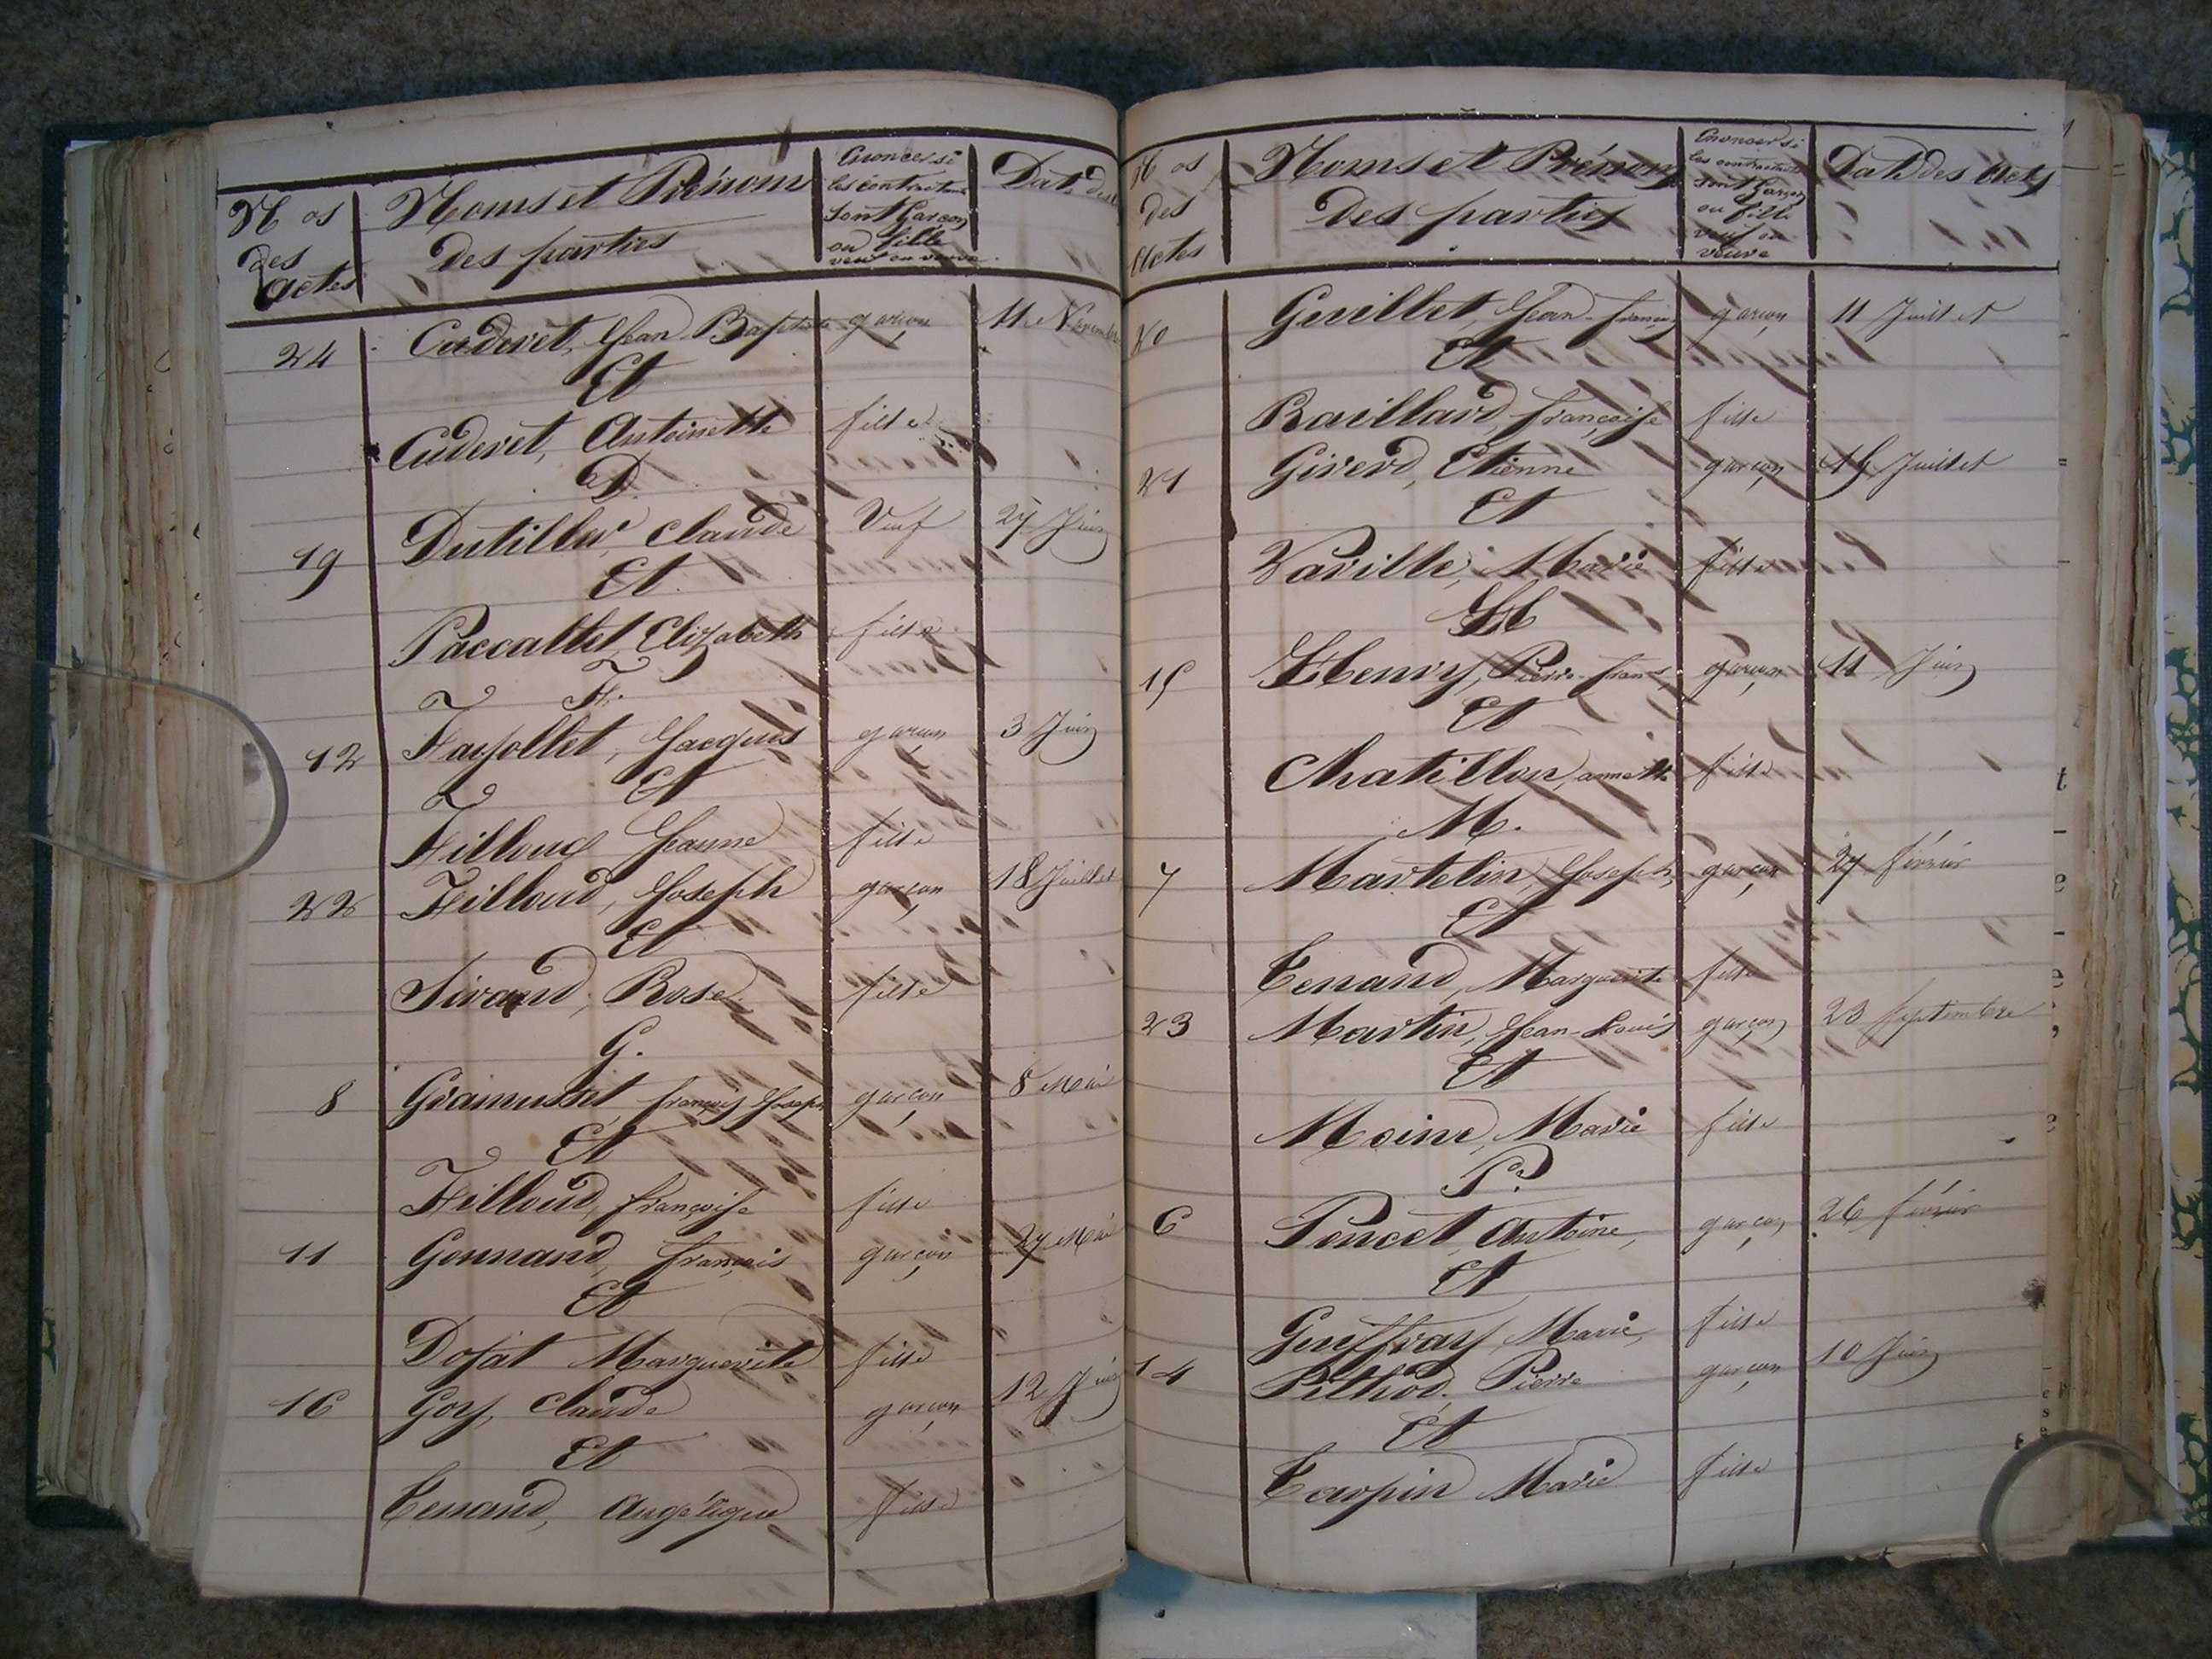 Nos des actes
Noms et Prénoms des parties
Enoncer si les contractants sont Garçon ou fille veuf ou veuve
Date des
24 Cuderet, Jean Baptiste garçon 11 Novembre
Et
Cuderet, Antoinette fille
D.
19 Dutiller Claude Veuf 27 Juin
Et
Paccallet Elizabeth fille
F.
12 Fayollet, Jacques garçon 3 Juin
Et
Filloud Jeanne fille
22 Filloud, Joseph garçon 18 Juillet
Et
Sivand, Rose fille
G.
8 Gramusset, françois Joseph garçon 8 Mai
Et
Filloud, françoise fille
11 Gonnand, françois garçon 27 Mai
Et
Dofat Marguerite fille
16 Goy, Claude garçon 12 Juin
Et
Tenand, Angélique fille
Nos des Actes
Noms et Prénoms Des parties
Enoncer si les contractants sont Garçon ou fille veuf ou veuve
Date des Actes
20 Guillet, Jean-françois garçon 11 Juillet
Et
Raillard, françoise fille
21 Giverd, Etienne garçon 15 Juillet
Et
Vaville, Marie fille
H
15 Henry, Pierre-franç garçon 11 Juin
Et
Chatillon, annette fille
M.
7 Martelin, Joseph, garçon 27 février
Et
Tenand, Marguerite fille
23 Martin, Jean-Louis garçon 23 septembre
Et
Moine, Marie fille
P.
6 Poncet, Antoine, garçon 26 février
Et
Geuffray, Marie, fille
14 Pilliod, Pierre garçon 10 Juin
Et
Tarpin Marie fille